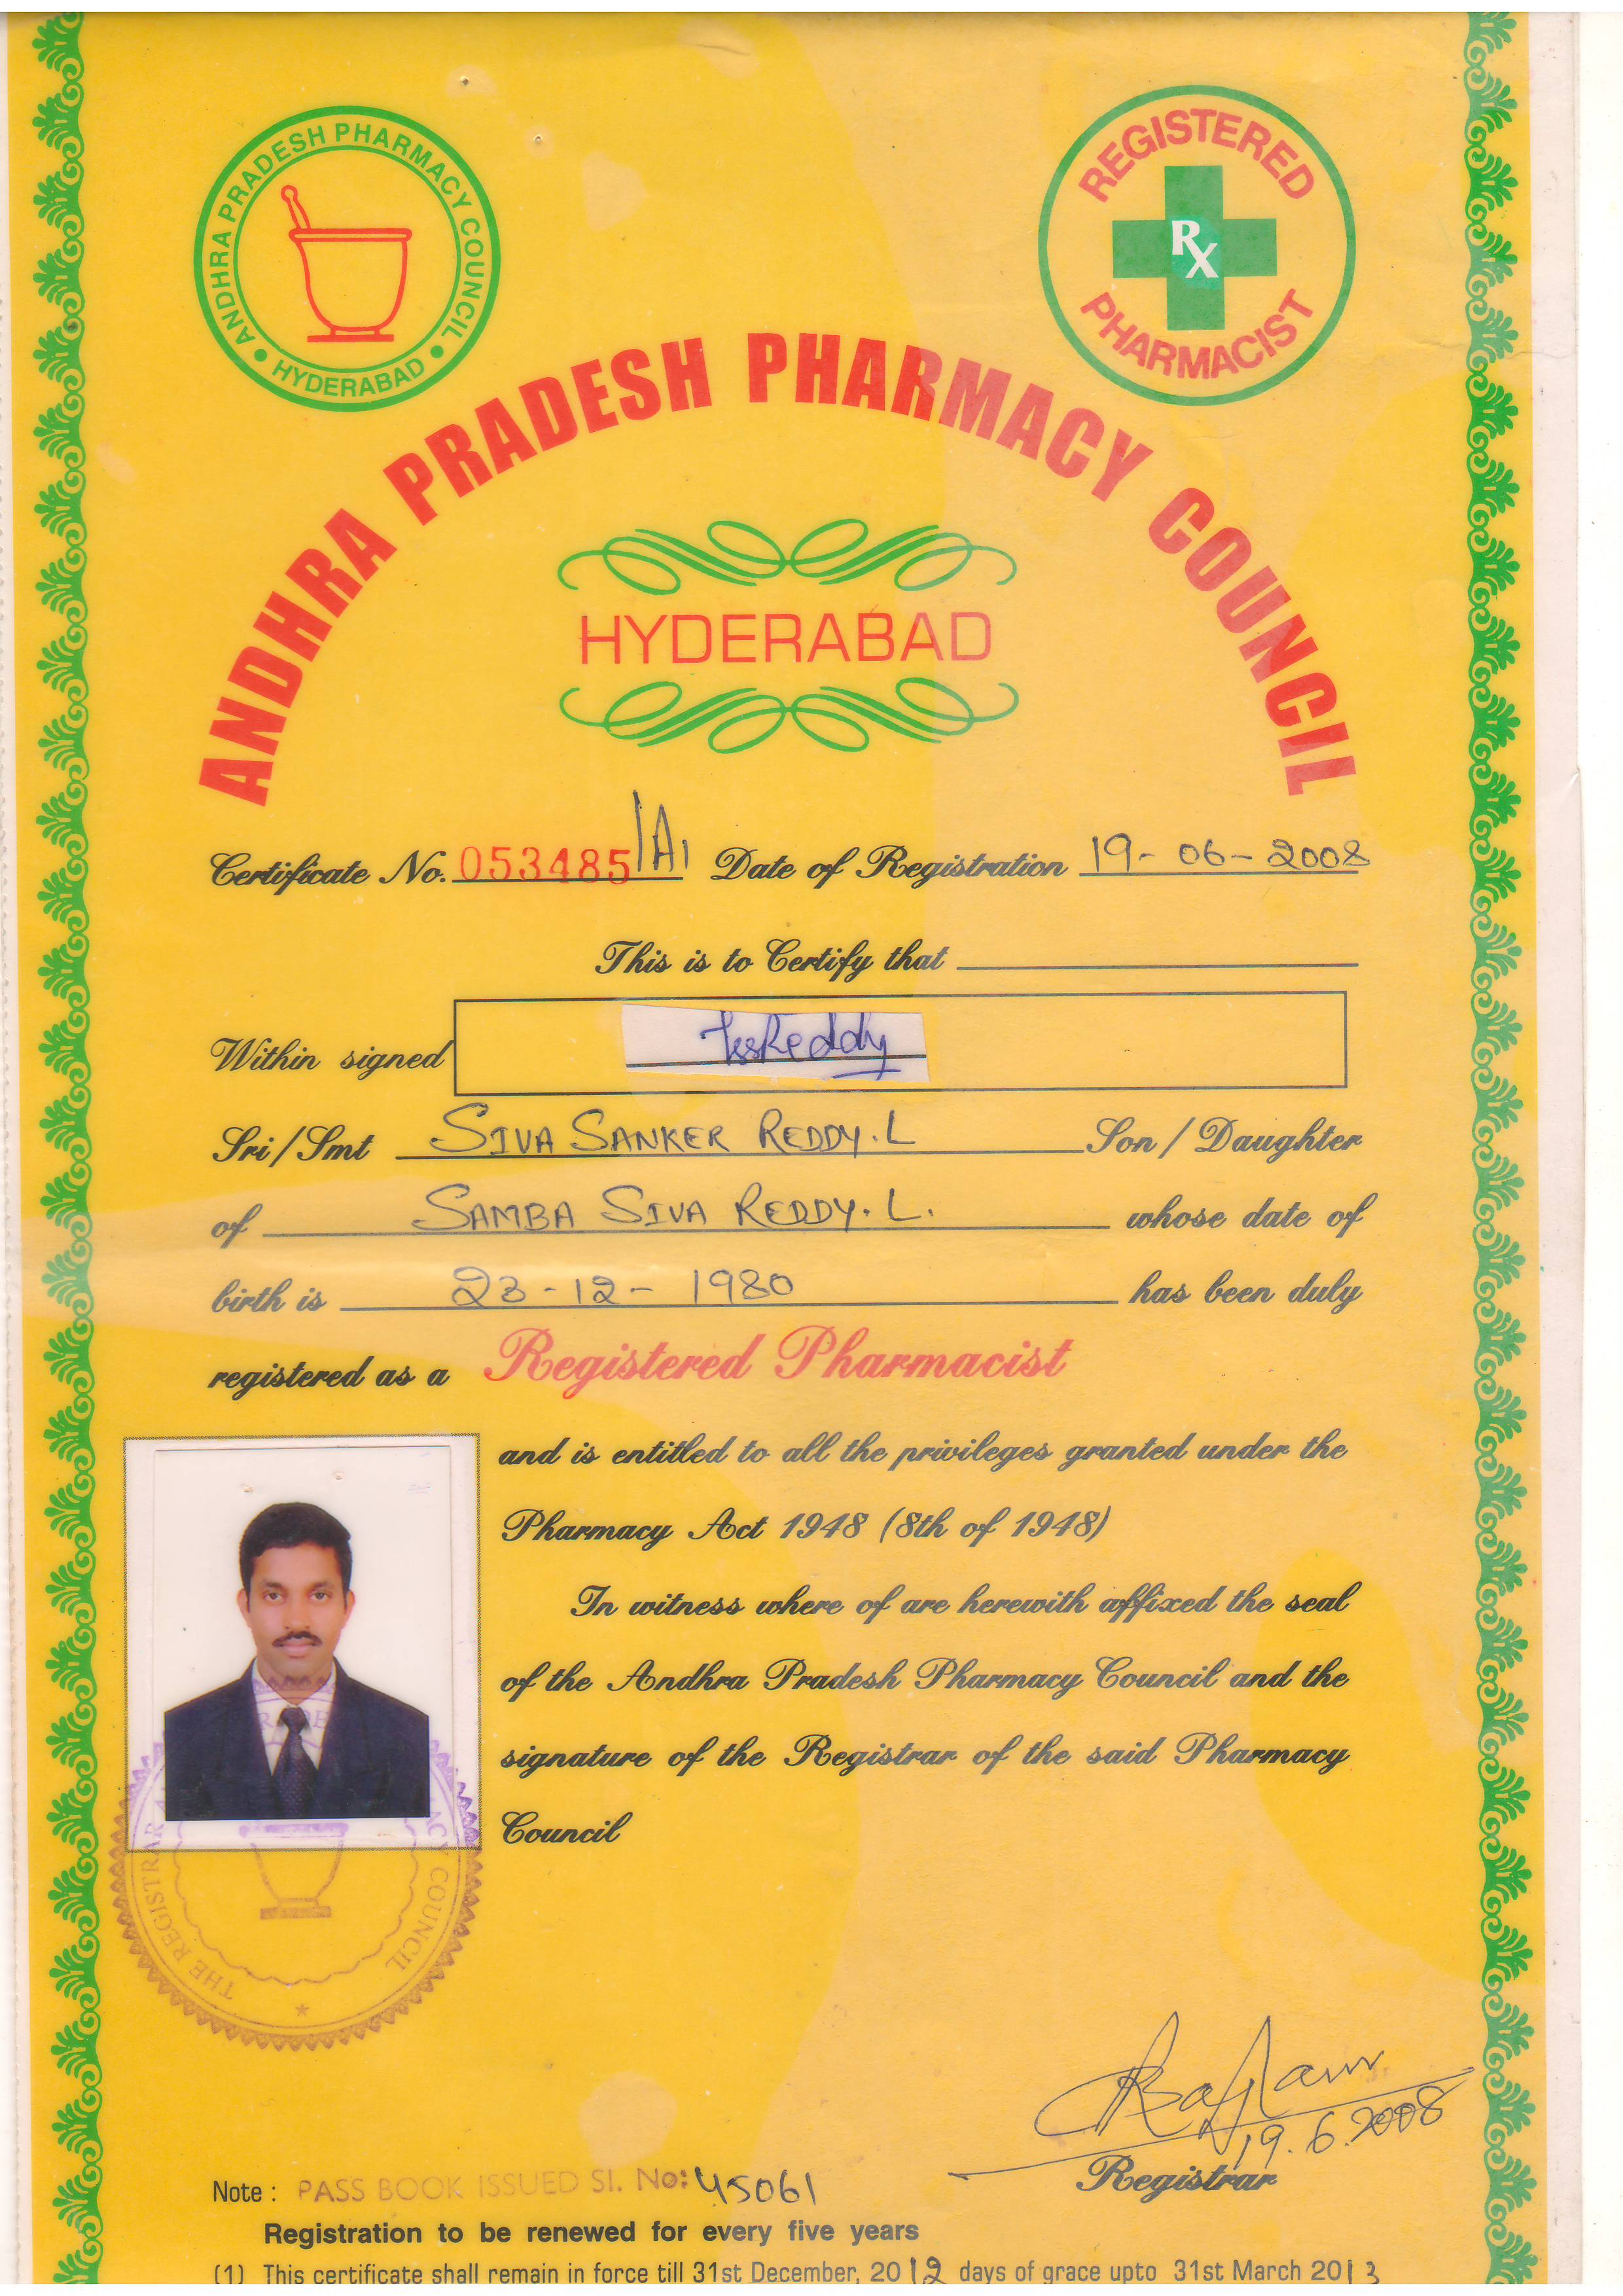 ANDHRA PRADESH PHARMACY COUNCIL
• HYDERABAD •
REGISTERED
Rx
PHARMACIST
ANDHRA PRADESH PHARMACY COUNCIL
HYDERABAD
Certificate No. 053485/A1 Date of Registration 19-06-2008
This is to Certify that
Within signed LSSReddy
Sri/Smt SIVA SANKER REDDY.L Son / Daughter
of SAMBA SIVA REDDY.L. whose date of
birth is 23-12-1980 has been duly
registered as a Registered Pharmacist
and is entitled to all the privileges granted under the
Pharmacy Act 1948 (8th of 1948)
In witness where of are herewith affixed the seal
of the Andhra Pradesh Pharmacy Council and the
signature of the Registrar of the said Pharmacy
Council
THE REGISTRAR
COUNCIL
19.6.2008
Registrar
Note : PASS BOOK ISSUED Sl. No: 45061
Registration to be renewed for every five years
(1) This certificate shall remain in force till 31st December, 2012 days of grace upto 31st March 2013